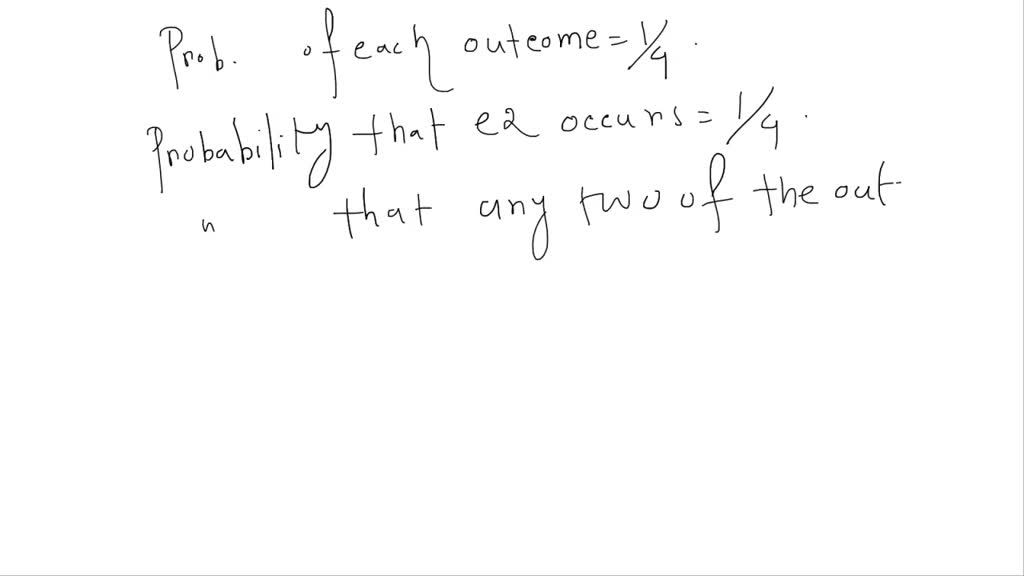 Prob. of each outcome = 1/4.
Probability that e2 occurs = 1/4.
" that any two of the out-